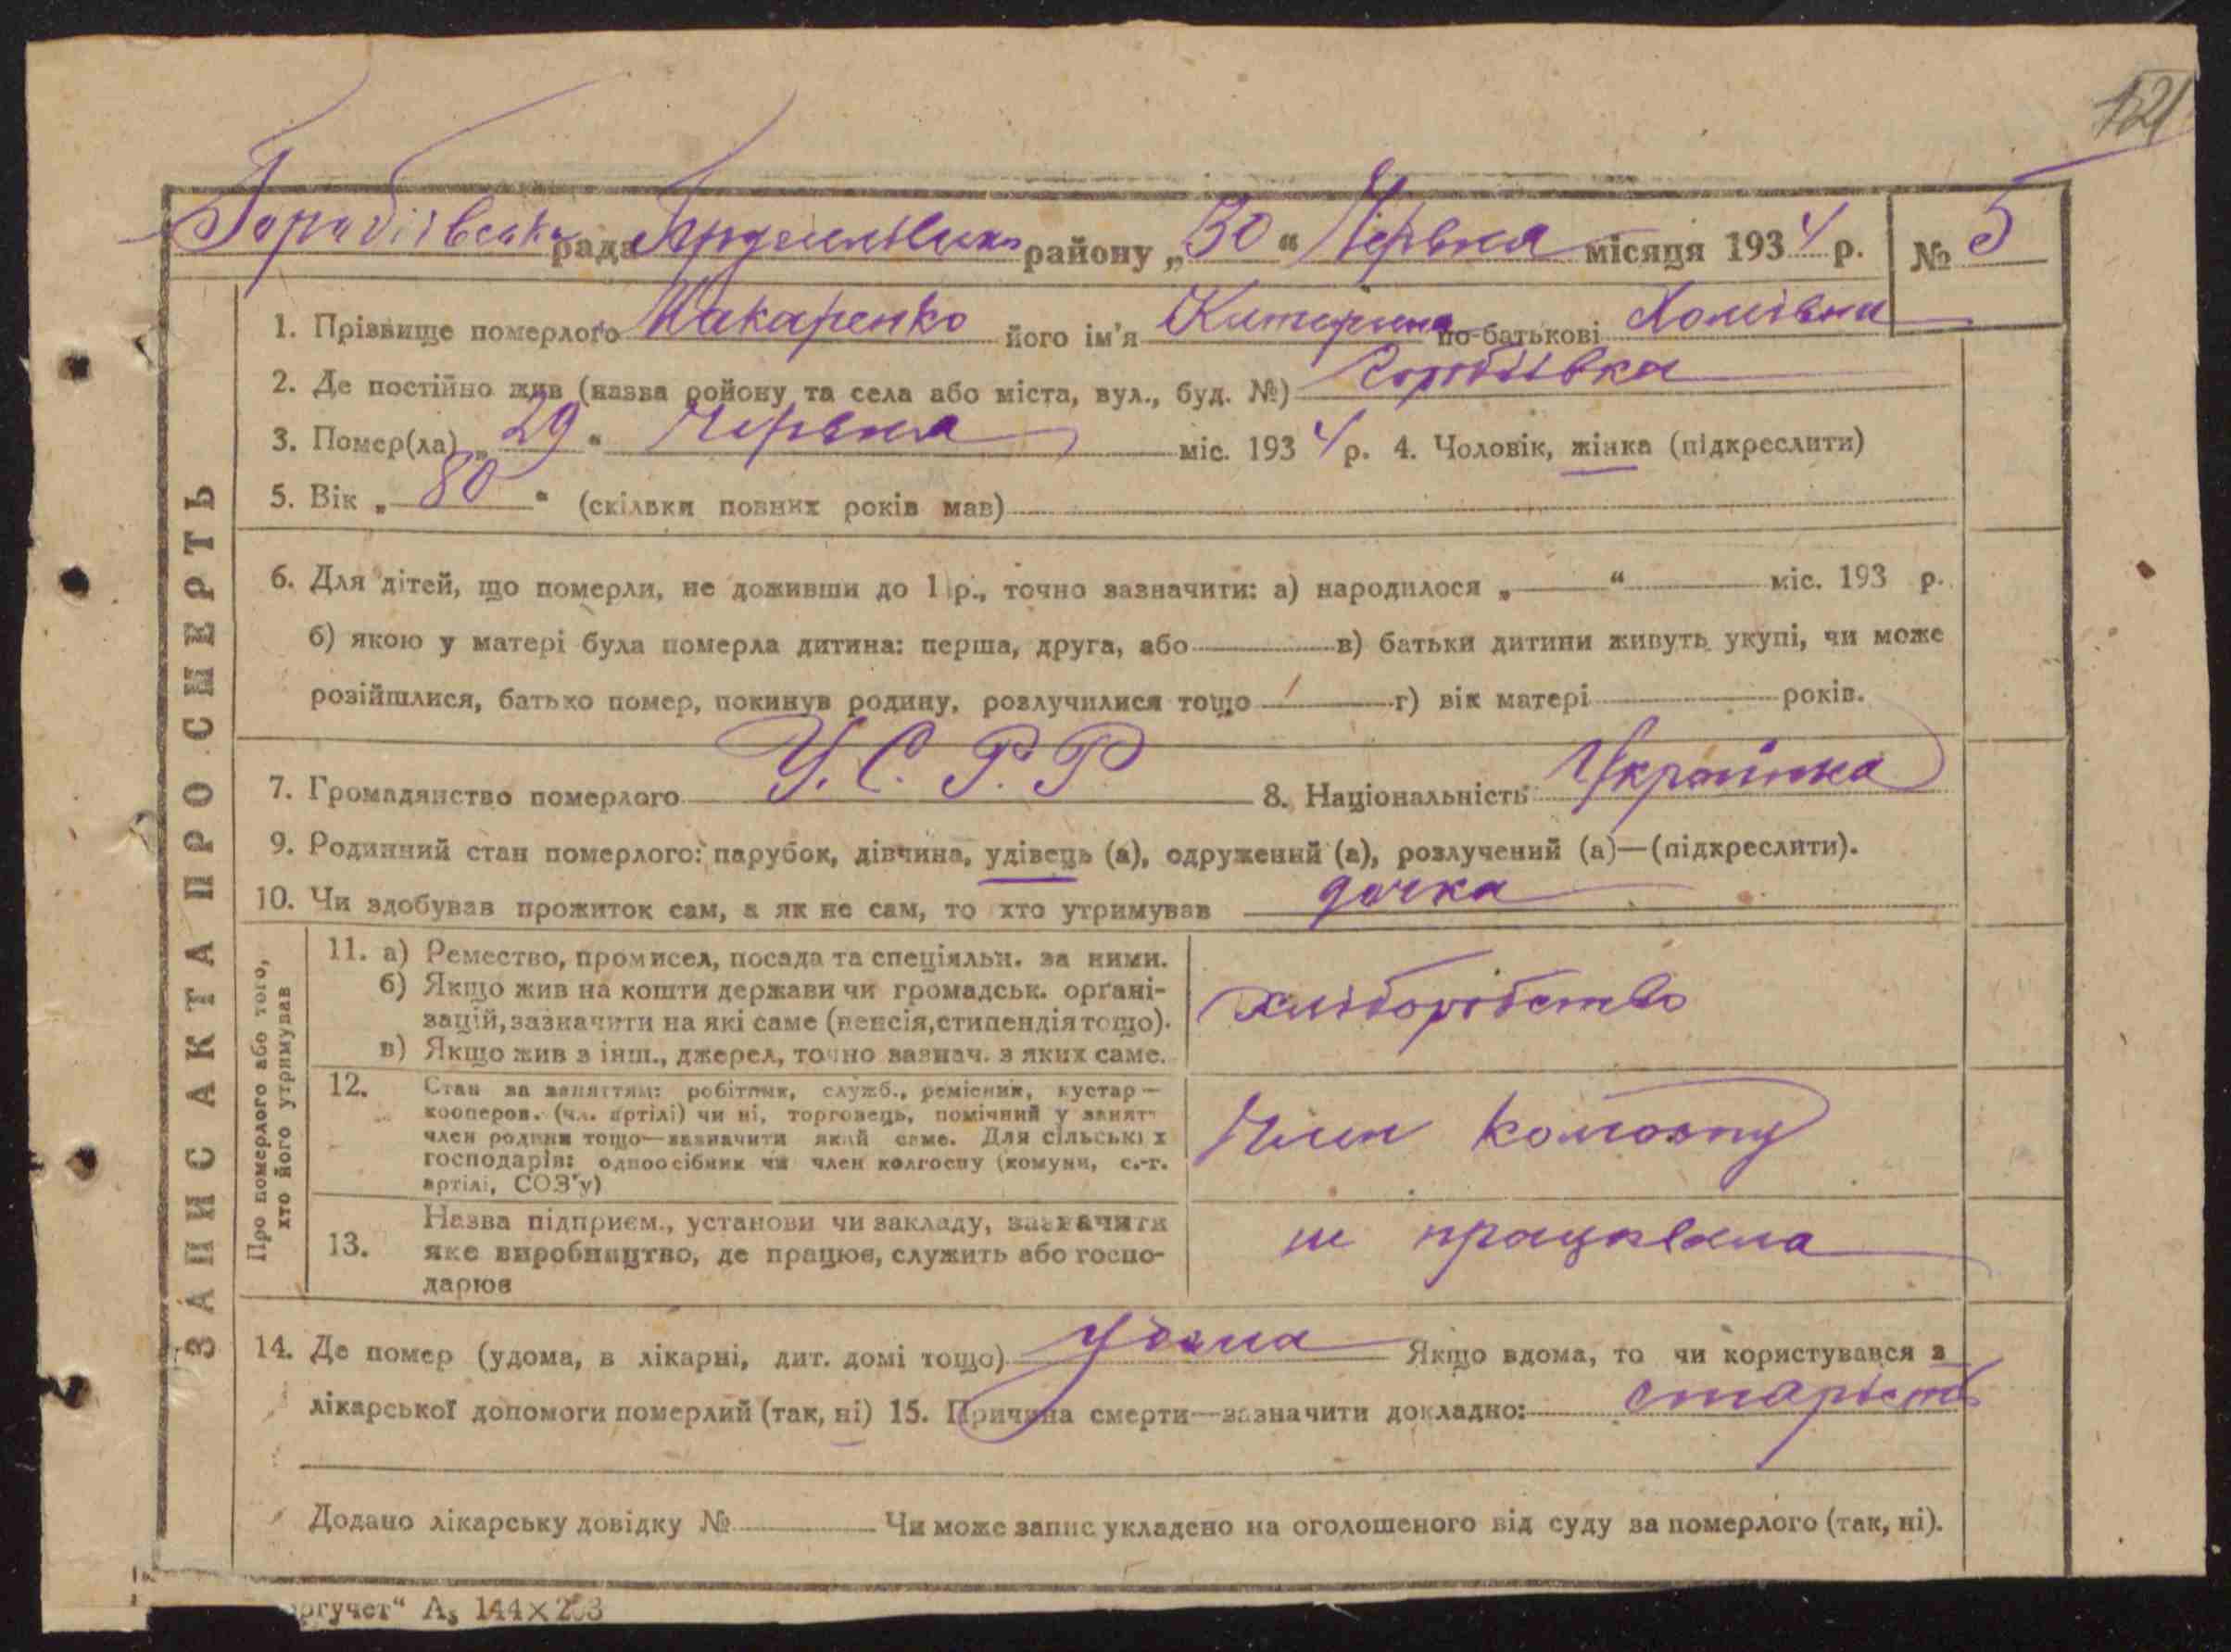 121
Горобіївська рада району „30“ Червня місяця 1934 р. № 5
ЗАПИС АКТА ПРО СМЕРТЬ
1. Прізвище померлого Макаренко його ім'я Катерина по-батькові Хомівна
2. Де постійно жив (назва ройону та села або міста, вул., буд. №) Горобіівка
3. Помер(ла) „29“ Червня міс. 1934 р. 4. Чоловік, жінка (підкреслити)
5. Вік „80“ (скільки повних років мав)
6. Для дітей, що померли, не доживши до 1 р., точно зазначити: а) народилося „ “ міс. 193 р.
б) якою у матері була померла дитина: перша, друга, або в) батьки дитини живуть укупі, чи може
розійшлися, батько помер, покинув родину, розлучилися тощо г) вік матері років.
7. Громадянство померлого У.С.Р.Р 8. Національність Українка
9. Родинний стан померлого: парубок, дівчина, удівець (а), одружений (а), розлучений (а)—(підкреслити).
10. Чи здобував прожиток сам, а як не сам, то хто утримував дочка
Про померлого або того,
хто його утримував
11. а) Ремество, промисел, посада та спеціяльн. за ними.
б) Якщо жив на кошти держави чи громадськ. органі-
зацій, зазначити на які саме (пенсія, стипендія тощо).
в) Якщо жив з інш., джерел, точно вазнач. з яких саме.
хліборобство
12. Стан за заняттям: робітник, служб., ремісник, кустар—
кооперов. (чл. артілі) чи ні, торговець, помічний у занят
член родини тощо—зазначити який саме. Для сільських
господарів: одноосібник чи член колгоспу (комуни, с.-г.
артілі, СОЗ'у)
Член колгоспу
13. Назва підприєм., установи чи закладу, зазначити
яке виробництво, де працює, служить або госпо-
дарює
не працювала
14. Де помер (удома, в лікарні, дит. домі тощо) удома Якщо вдома, то чи користувався з
лікарської допомоги померлий (так, ні) 15. Причина смерти—зазначити докладно: старість
Додано лікарську довідку № Чи може запис укладено на оголошеного від суду за померлого (так, ні).
оргучет“ А₅ 144×203